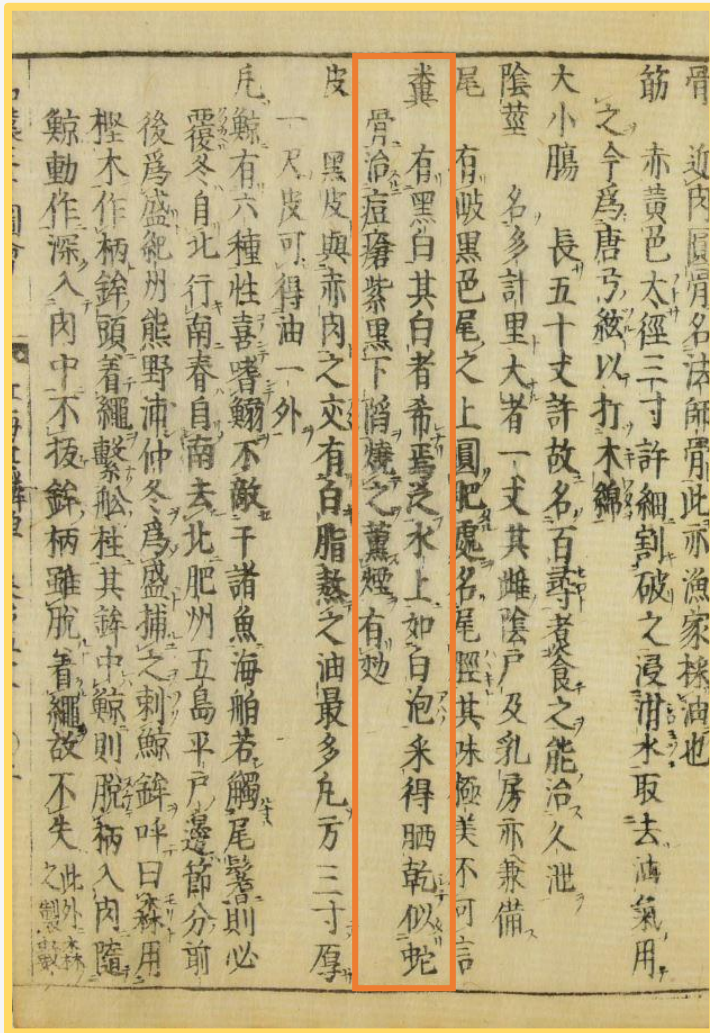 骨　近肉圓骨名法師骨此亦漁家採油也
筋　赤黄色太徑三寸許細割破之浸泔水取去油氣用
之今爲唐弓絃以打木綿
大小腸　長五十丈許故名百尋煮食之能治久泄
陰莖　名多計里大者一丈其雌陰戸及乳房亦兼備
尾　有岐黒色尾之上圓肥處名尾脛其味極美不可言
糞　有黒白其白者希焉泛水上如白泡采得晒乾似蛇
骨治痘瘡紫黒下陷燒之薫煙有効
皮　黒皮與赤肉之交有白脂熬之油最多凡方三寸厚
一尺皮可得油一外
凡鯨有六種性喜嗜鰯不敵于諸魚海舶若觸尾鬐則必
覆冬自北行南春自南去北肥州五島平戸邊節分前
後爲盛紀州熊野浦仲冬爲盛捕之刺鯨鉾呼曰森用
樫木作柄鉾頭着繩繫舩柱其鉾中鯨則脱柄入肉隨
鯨動作深入肉中不拔鉾柄雖脱着繩故不失此外森之製數